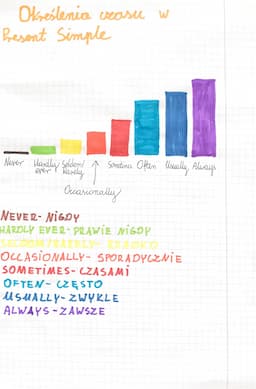 Określenia czasu w
Present Simple
Never
Hardly
ever
Seldom/
Rarely
Occasionally
Sometimes
Often
Usually
Always
NEVER- NIGDY
HARDLY EVER- PRAWIE NIGDY
SELDOM/RARELY- RZADKO
OCCASIONALLY- SPORADYCZNIE
SOMETIMES- CZASAMI
OFTEN- CZĘSTO
USUALLY- ZWYKLE
ALWAYS- ZAWSZE